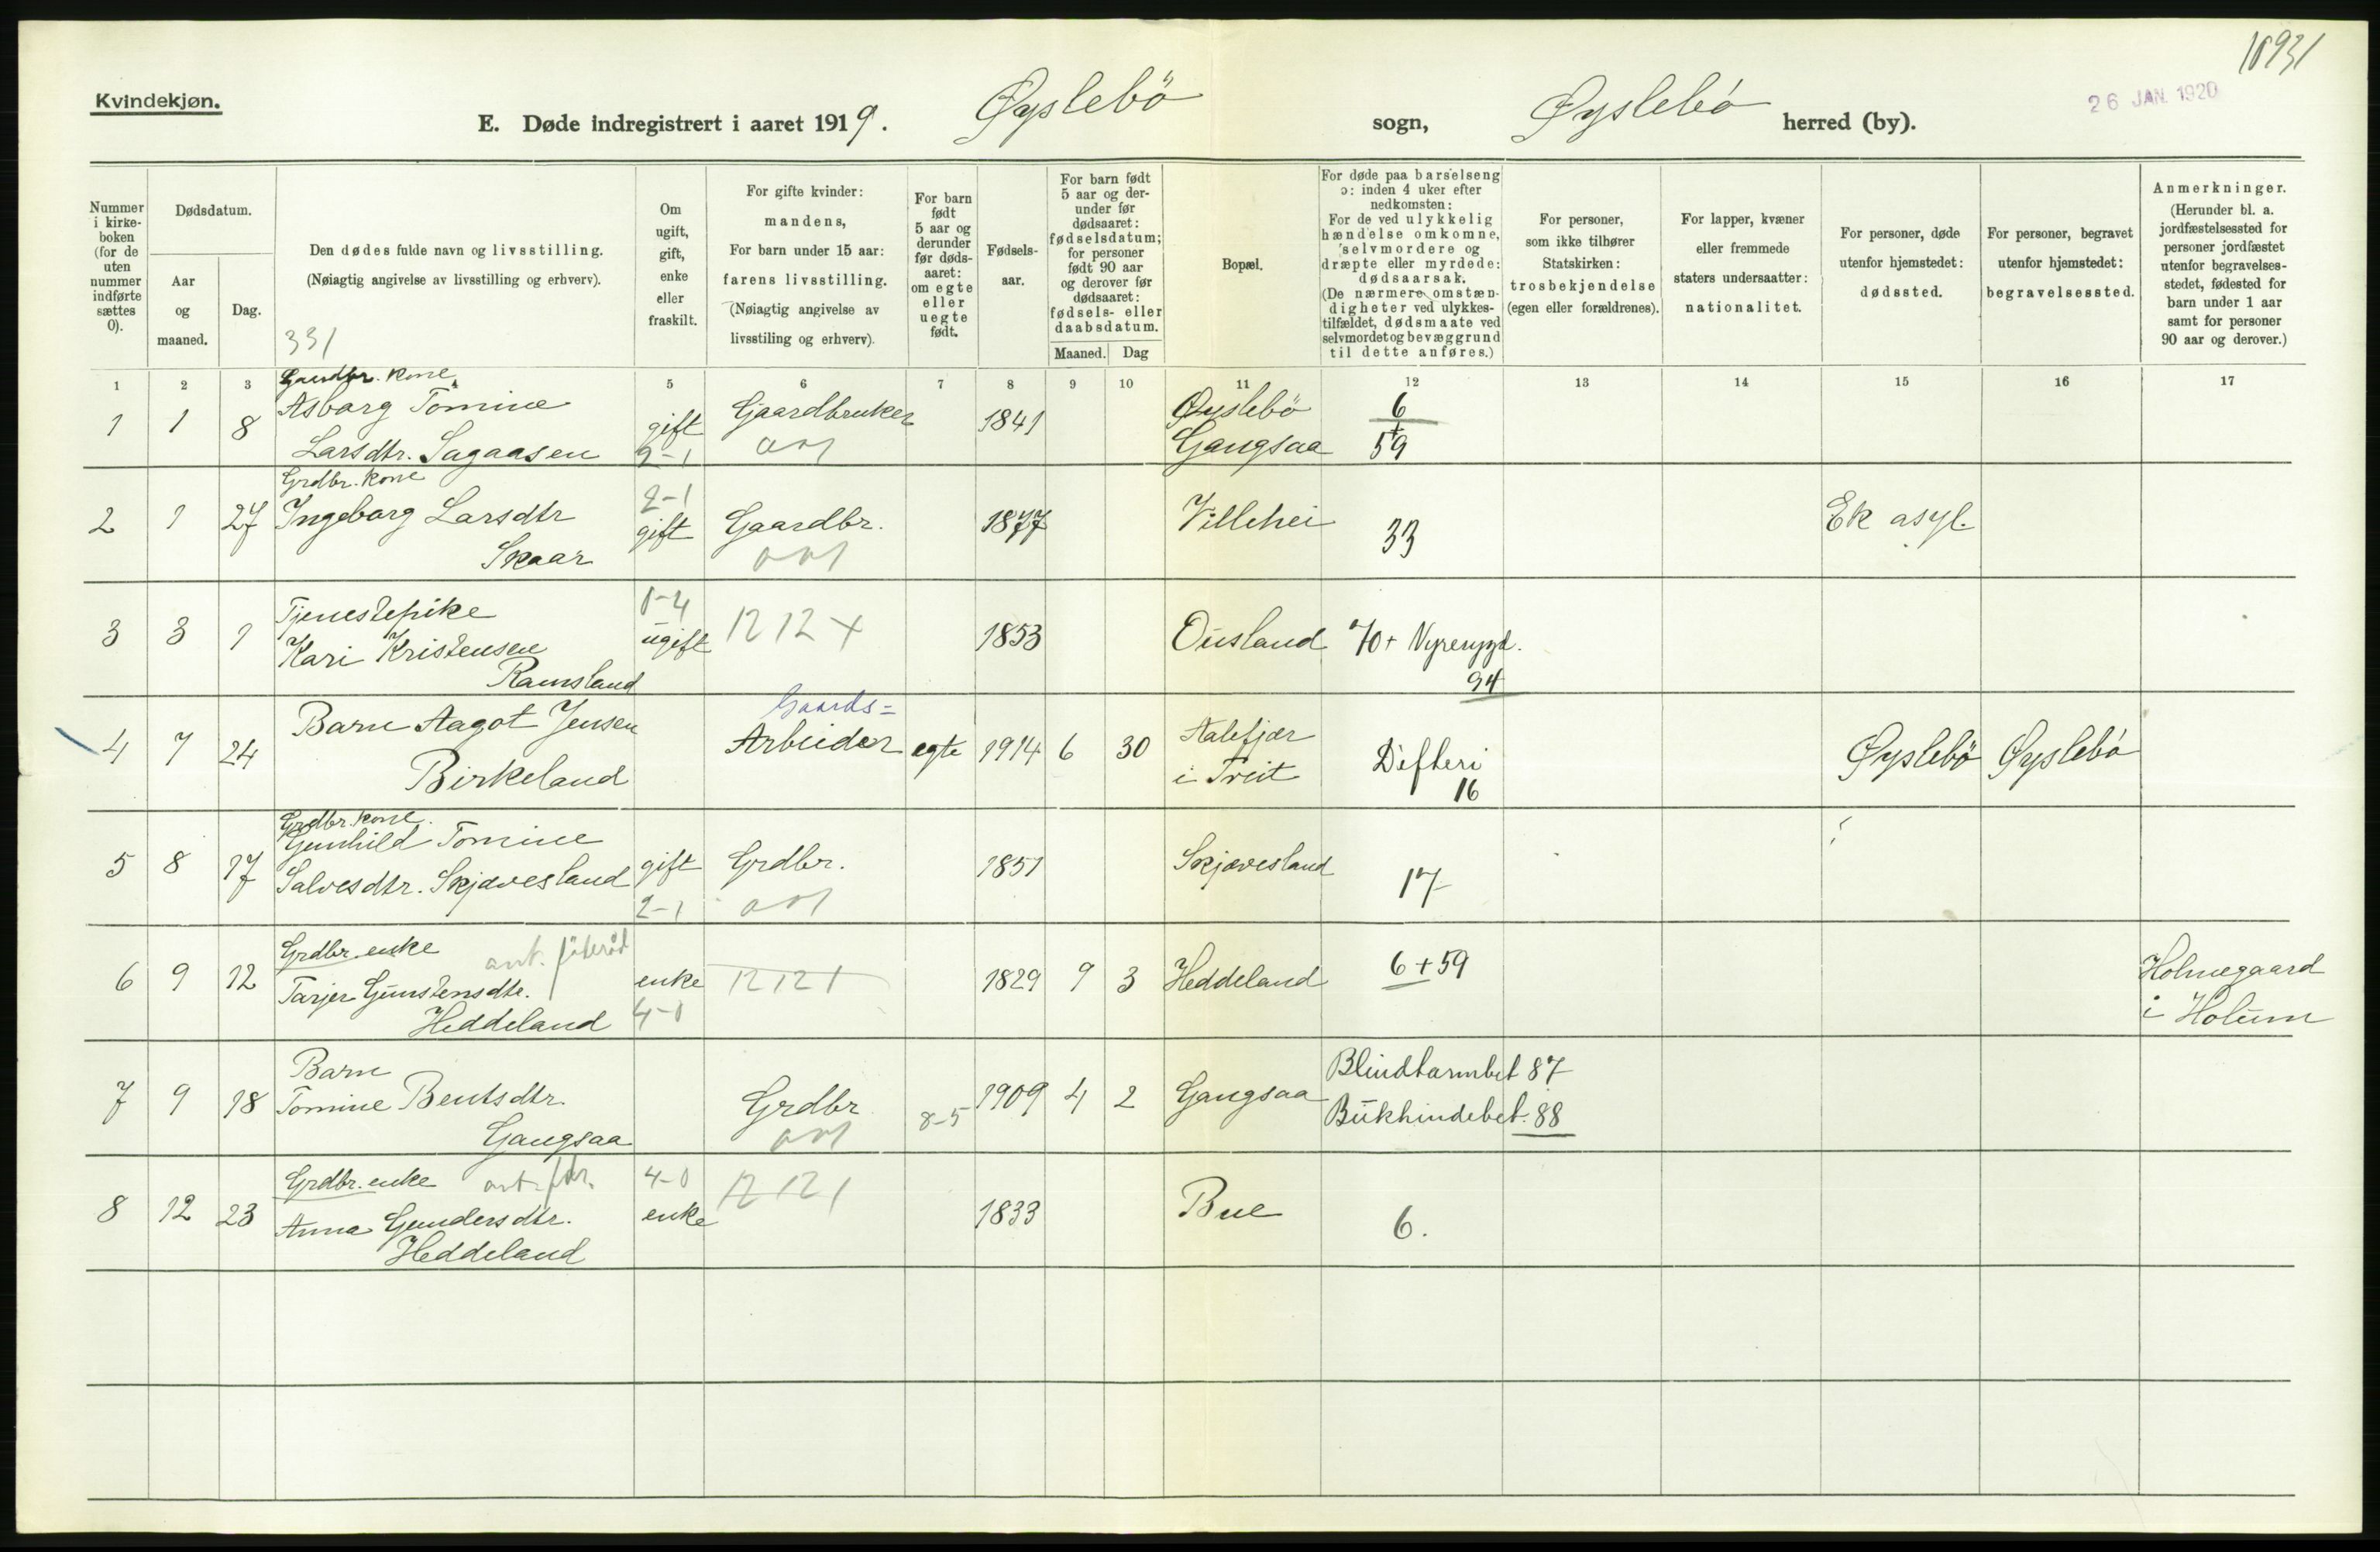 10931
Kvindekjøn.
26 JAN. 1920
E. Døde indregistrert i aaret 1919. Øyslebö sogn, Øyslebö herred (by).
Nummer i kirke-boken (for de uten nummer indførte sættes 0).
Dødsdatum.
Aar og maaned.
Dag.
Den dødes fulde navn og livsstilling.
(Nøiagtig angivelse av livsstilling og erhverv).
331
Om ugift, gift, enke eller fraskilt.
For gifte kvinder: mandens,
For barn under 15 aar: farens livsstilling.
(Nøiagtig angivelse av livsstiling og erhverv).
For barn født 5 aar og derunder før døds-aaret: om egte eller uegte født.
Fødsels-aar.
For barn født 5 aar og der-under før dødsaaret: fødselsdatum; for personer født 90 aar og derover før dødsaaret: fødsels- eller daabsdatum.
Maaned. Dag
Bopæl.
For døde paa barselseng ɔ: inden 4 uker efter nedkomsten:
For de ved ulykkelig hændelse omkomne, selvmordere og dræpte eller myrdede: dødsaarsak.
(De nærmere omstæn-digheter ved ulykkes-tilfældet, dødsmaate ved selvmordet og bevæggrund til dette anføres.)
For personer, som ikke tilhører Statskirken: trosbekjendelse (egen eller forældrenes).
For lapper, kvæner eller fremmede staters undersaatter: nationalitet.
For personer, døde utenfor hjemstedet: dødssted.
For personer, begravet utenfor hjemstedet: begravelsessted.
Anmerkninger.
(Herunder bl. a. jordfæstelsessted for personer jordfæstet utenfor begravelses-stedet, fødested for barn under 1 aar samt for personer 90 aar og derover.)
1 2 3 5 6 7 8 9 10 11 12 13 14 15 16 17
Gaardbr. kone
1 1 8 Asborg Tomine Larsdtr. Sagaasen gift 2-1 Gjaardbruker 1841 Øyslebö Gangsaa 6 + 59
Grdbr. kone
2 1 27 Ingeborg Larsdtr Skaar 2-1 gift Gaardbr. 1877 Villehei 33 Ek asyl.
Tjenestepike
3 3 1 Kari Kristensen Ramsland ugift 1212 + 1853 Ousland 70 + Nyresygd. 94
4 7 24 Barn Aagot Jensen Birkeland Gaards= Arbeider egte 1914 6 30 Aalefjær i Treit Difteri 16 Øyslebö Øyslebö
Grdbr. kone.
5 8 17 Gunhild Tomine Salvesdtr. Skjævesland gift 2-1 Grdbr. 1851 Skjævesland 17
Grdbr. enke
6 9 12 Tarjer Gunstensdtr. Heddeland enke 4-0 1212 1 1829 9 3 Heddeland 6 + 59 Holmegaard i Holum
Barn
7 9 18 Tomine Bentsdtr. Gangsaa Grdbr 8-5 1909 4 2 Gangsaa Blindtarmbet 87 Bukhindebet. 88
Grdbr. enke
8 12 23 Anna Gundersdtr. Heddeland 4-0 enke 1212 1 1833 Bue 6.